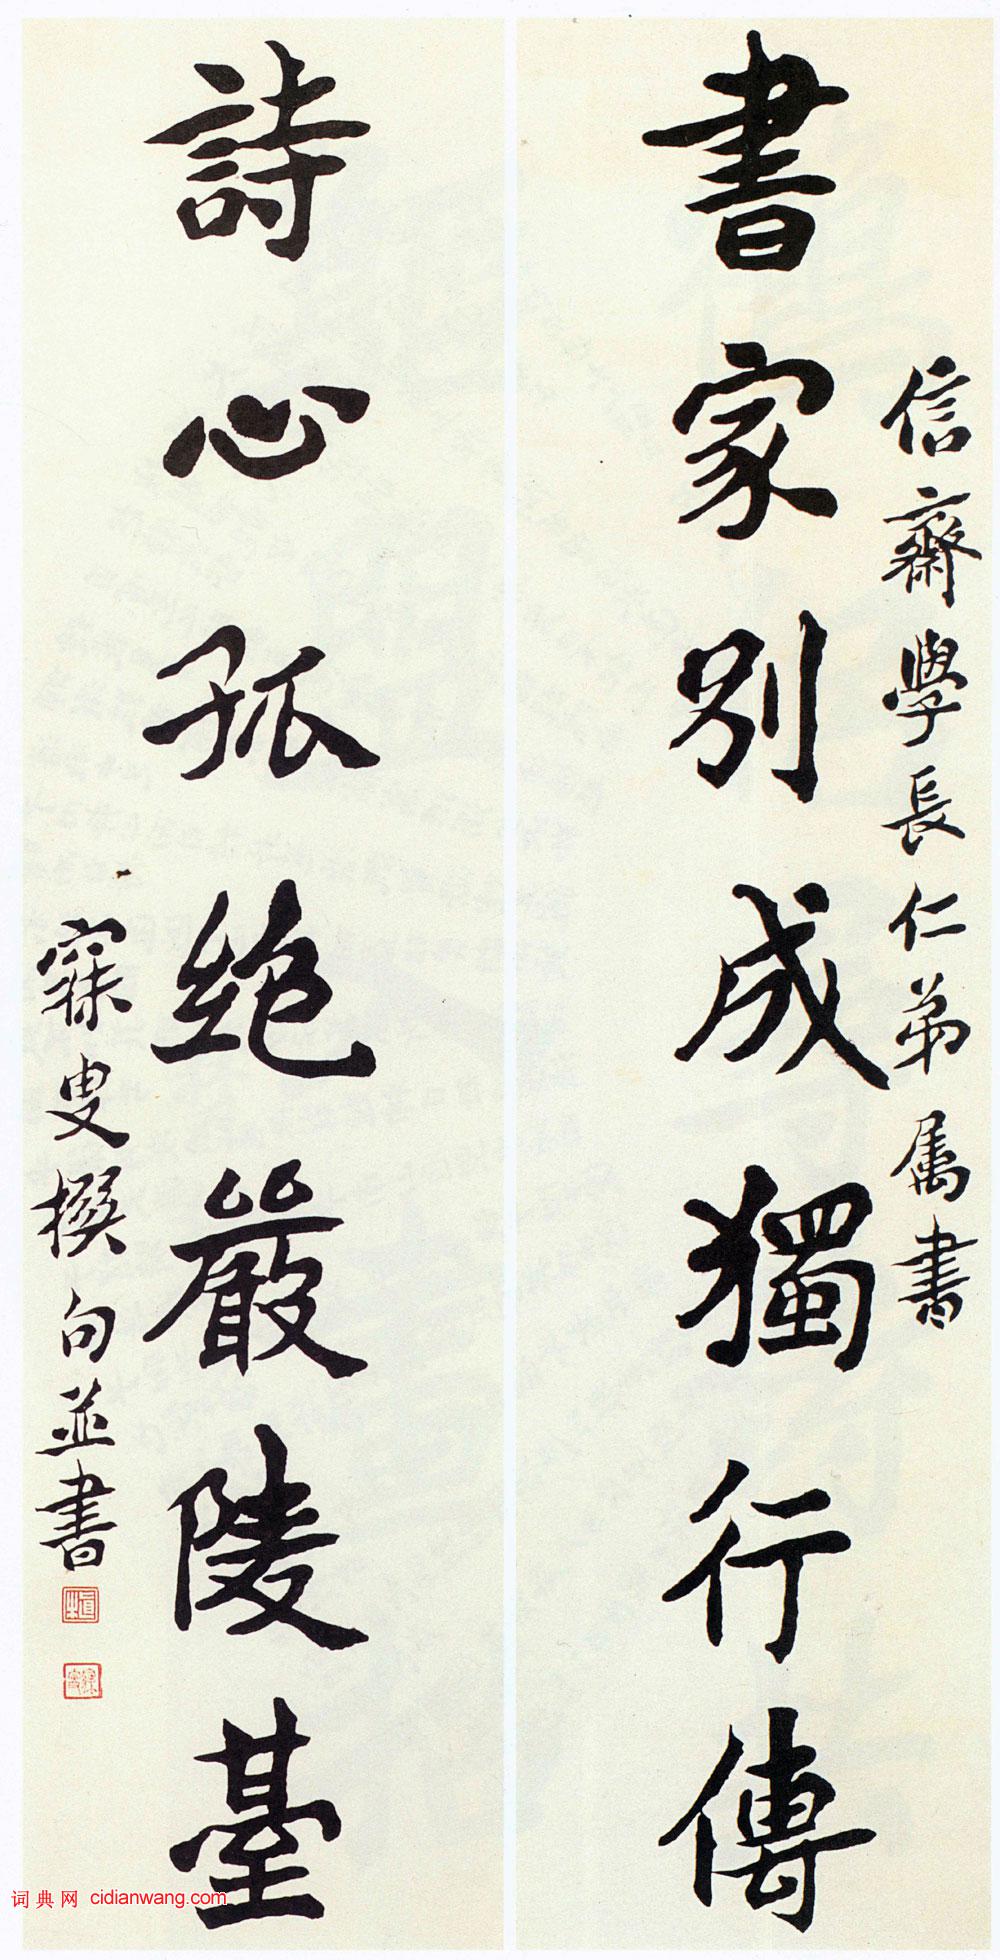 信齋學長仁弟属書
書家別成獨行傳
詩心孤絶嚴陵臺
寐叟撰句並書
词典网 cidianwang.com